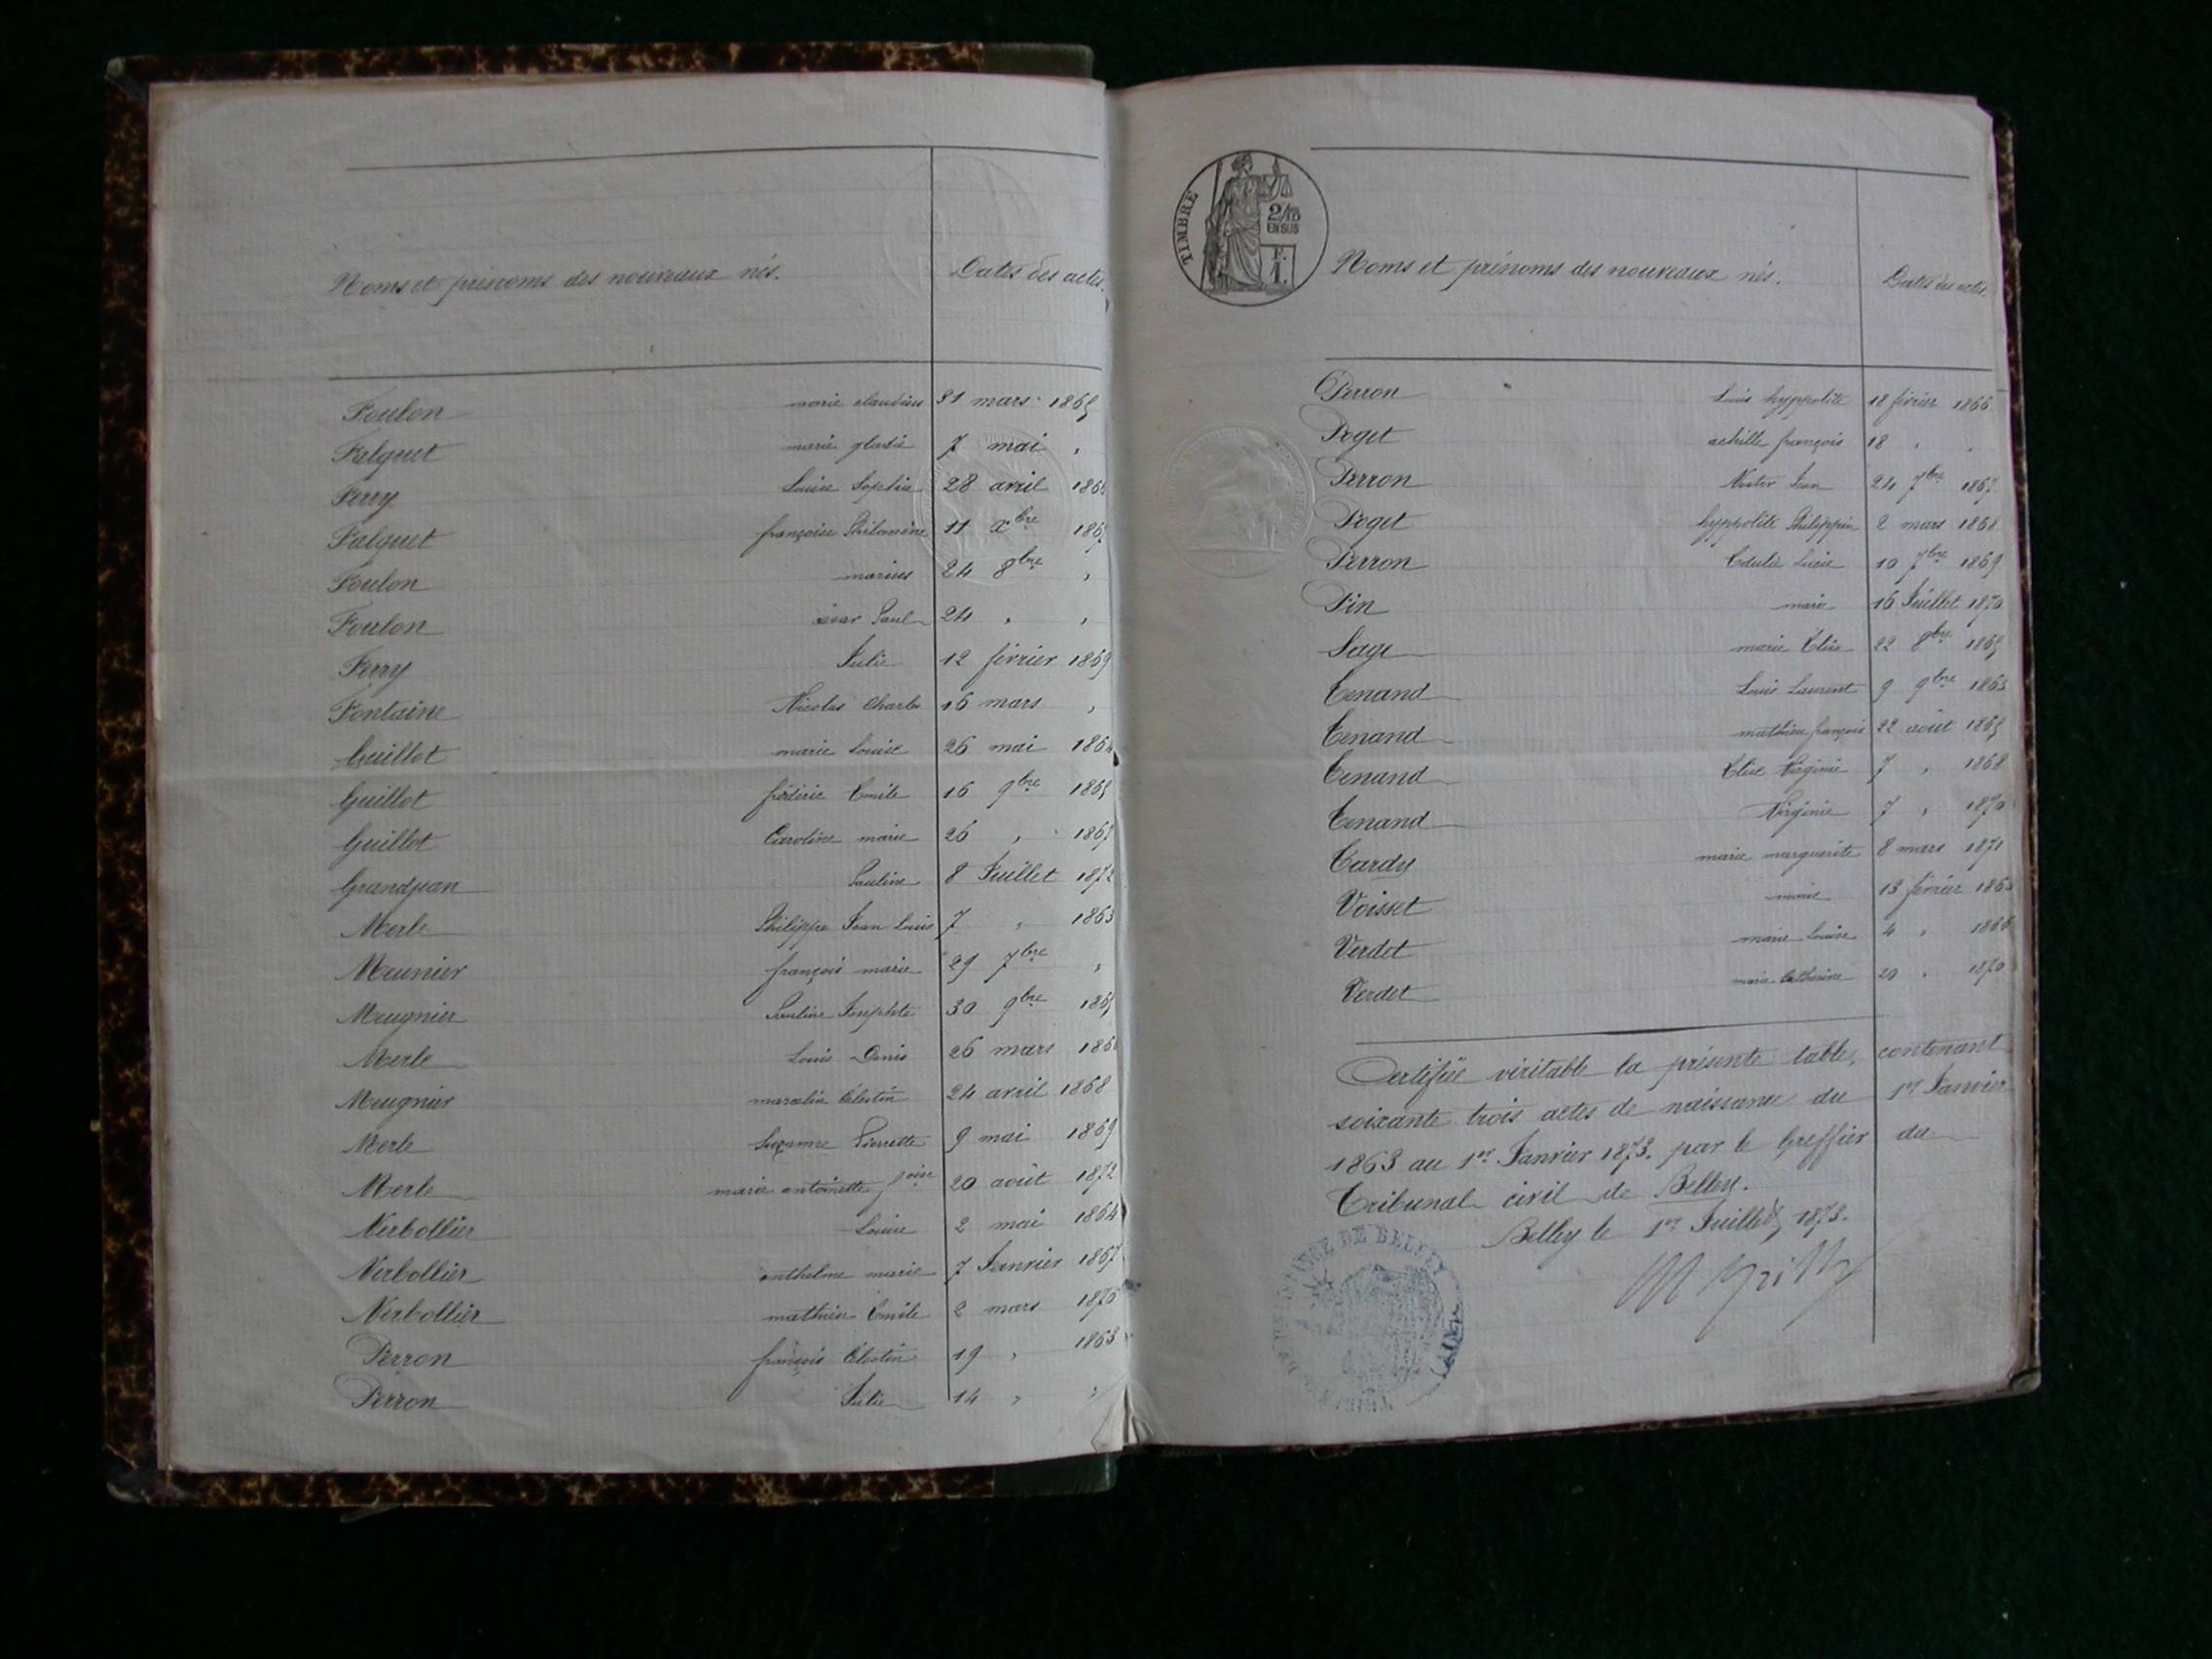 Noms et prénoms des nouveaux nés. Dates des actes.
Foulon marie claudius 31 mars 1865
Falquet marie 7 mai "
Ferry Louise Sophie 28 avril 1866
Falquet françoise Philomène 11 Xbre
Foulon marius 24 8bre "
Foulon Paul 24 " "
Ferry Julie 12 février 1869
Fontaine Nicolas Charles 16 mars "
Guillot marie Louise 26 mai 1864
Guillot fréderic Emile 16 9bre 1865
Guillot Caroline marie 26 " 1867
Grandjean Pauline 8 Juillet 1872
Merle Philippe Jean Louis 7 " 1863
Meunier françois marie 29 7bre "
Meugnier Pauline Josephte 30 9bre 1865
Merle Louis Denis 26 mars
Meugnier marcelin Célestin 24 avril 1868
Merle Suzanne Pierrette 9 mai 1869
Merle marie antoinette foise 20 août 1872
Nerbollier Louise 2 mai 1864
Nerbollier anthelme marie 7 Janvier 1867
Nerbollier mathieu Emile 2 mars 1870
Perron françois Célestin 19 " 1863
Perron Julie 14 " "
TIMBRE
2/10
EN SUS
F.
1.
Noms et prénoms des nouveaux nés. Dates des actes.
Perron Louis hyppolite 18 février 1866
Poget achille françois 18 " "
Perron Victor Jean 24 7bre 1867
Poget hyppolite Philippin 2 mars 1868
Perron Edulie Lucie 10 7bre 1869
Pin marie 16 Juillet 1870
Sage marie Elise 22 8bre 1865
Tenand Louis Laurent 9 9bre 1863
Tenand mathieu françois 22 août 1865
Tenand Elise Virginie 7 " 1868
Tenand Virginie 7 " 1870
Tardy marie marguerite 8 mars 1871
Voisset marie 13 février
Verdet marie Louise 4 " 1866
Verdet marie Catherine 20 " 1870
Certifiée véritable la présente table, contenant
soixante trois actes de naissance du 1er Janvier
1863 au 1er Janvier 1873. par le Greffier du
Tribunal civil de Belley.
Belley le 1er Juillet 1873.
DE BELLEY
(AIN)